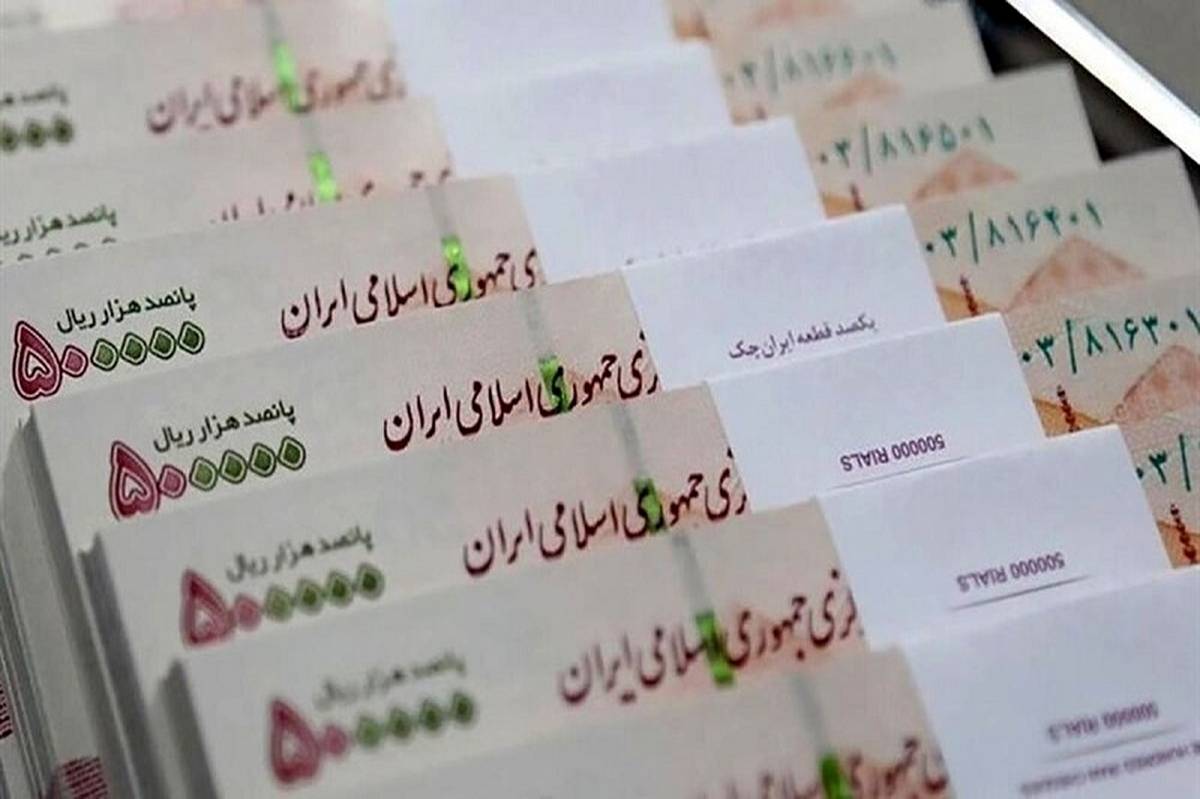 جمهوری اسلامی ایران
۰۳/۸۱۶۶۰۱
پانصد هزار ریال
۰۳/۸۱۶۵۰۱
پانصد هزار ریال
۵۰۰۰۰۰
جمهوری اسلامی ایران
۰۳/۸۱۶۴۰۱
پانصد هزار ریال
۵۰۰۰۰۰
زی جمهوری اسلامی ایران
یکصد قطعه ایران چک
۰۳/۸۱۶۳۰۱
پانصد هزار ریال
۵۰۰۰۰۰
زی جمهوری اسلامی ایران
500000 RIALS
۰۳/
پانصد هزار ریال
۵۰۰۰۰۰
کزی جمهوری اسلامی ایران
500000 RIALS
جمهوری اسلامی
500000 RIALS
HUNDRED IRAN CHEQUES